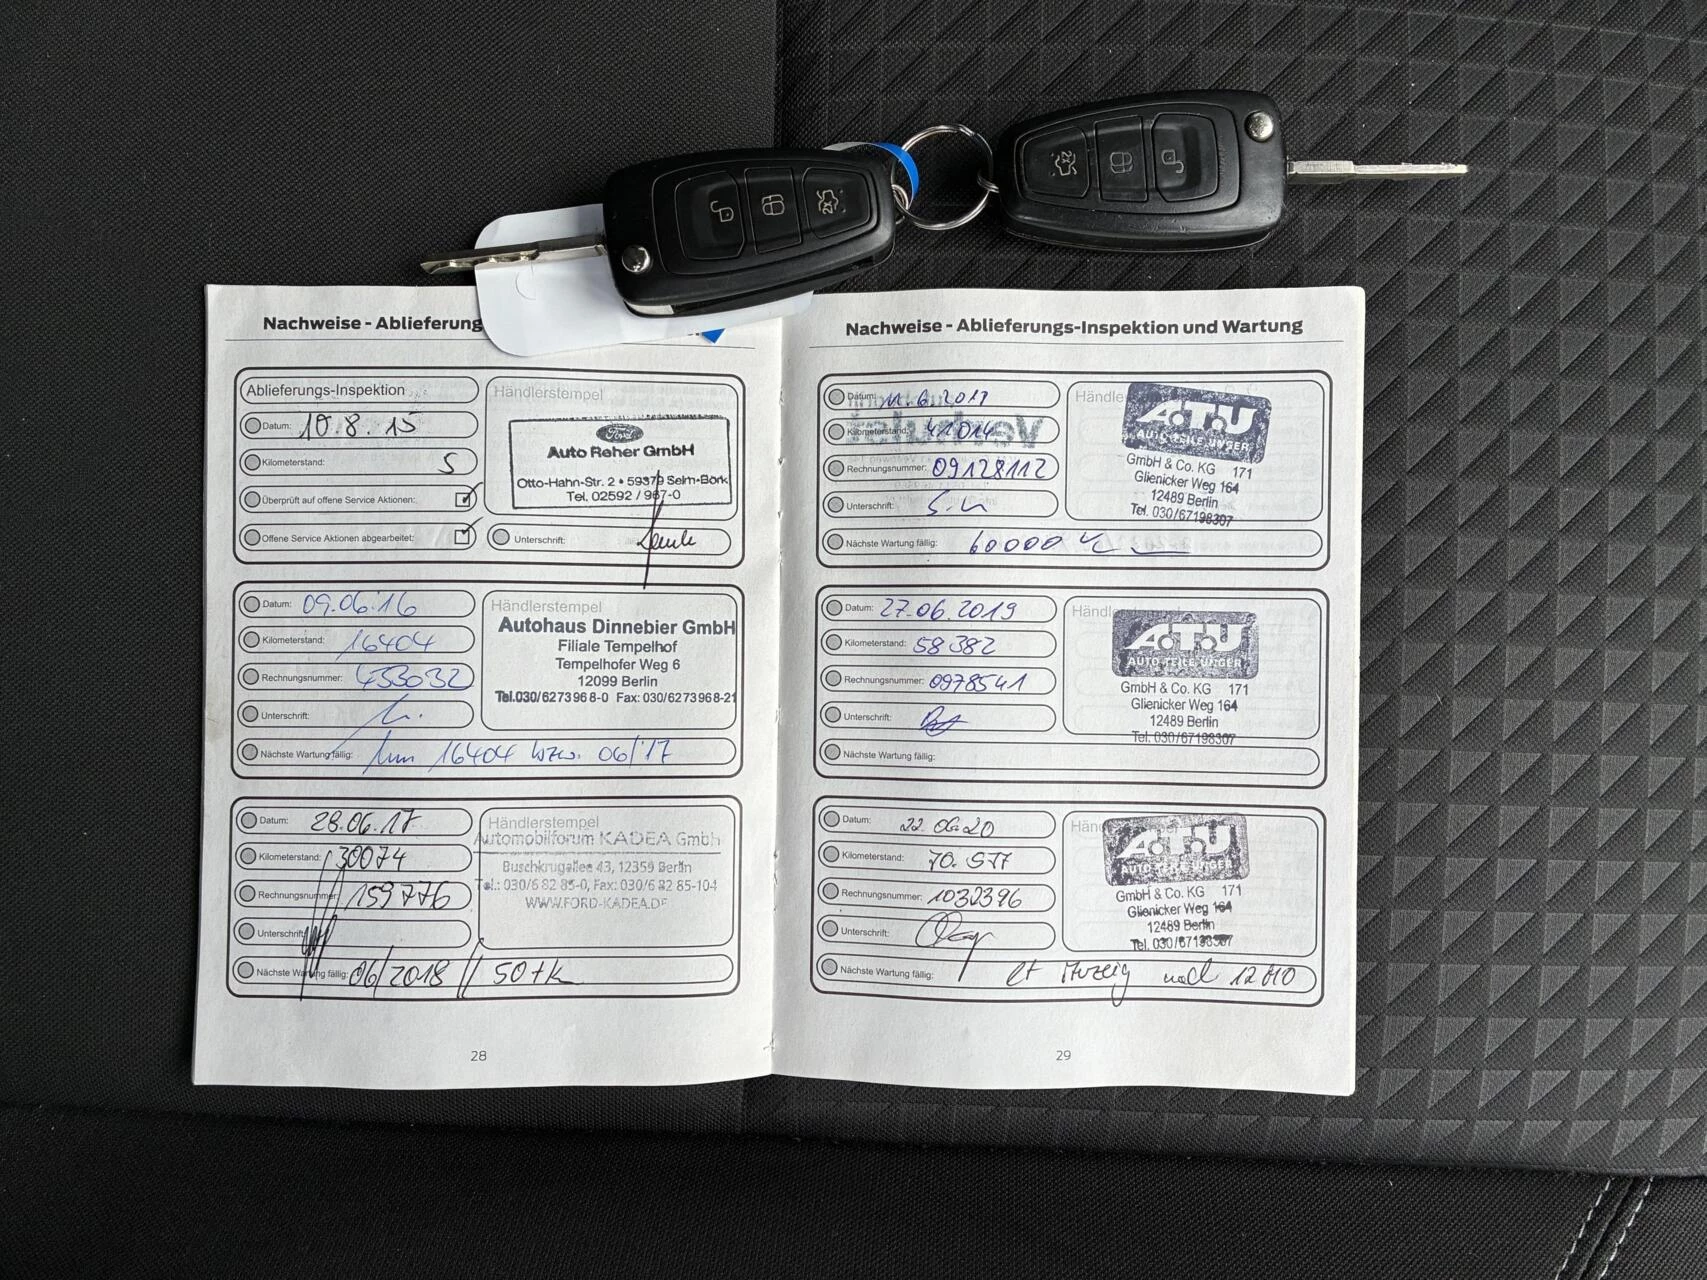 Nachweise - Ablieferung
Ablieferungs-Inspektion
Datum: 10.8.15
Kilometerstand: 5
Überprüft auf offene Service Aktionen:
Offene Service Aktionen abgearbeitet:
Händlerstempel
Ford
Auto Reher GmbH
Otto-Hahn-Str. 2 • 59379 Selm-Bork
Tel. 02592 / 967-0
Unterschrift:
Datum: 09.06.16
Kilometerstand: 16404
Rechnungsnummer: 453032
Unterschrift:
Nächste Wartung fällig: 16404 bzw. 06/17
Händlerstempel
Autohaus Dinnebier GmbH
Filiale Tempelhof
Tempelhofer Weg 6
12099 Berlin
Tel.030/6273968-0 Fax: 030/6273968-21
Datum: 28.06.17
Kilometerstand: 30074
Rechnungsnummer: 159776
Unterschrift:
Nächste Wartung fällig: 06/2018 // 50tk
Händlerstempel
Automobilforum KADEA GmbH
Buschkrugallee 43, 12359 Berlin
Tel.: 030/6 82 85-0, Fax: 030/6 82 85-104
WWW.FORD-KADEA.DE
28
Nachweise - Ablieferungs-Inspektion und Wartung
Datum:
Kilometerstand: 41014
Rechnungsnummer: 09128112
Unterschrift:
Nächste Wartung fällig: 60000
A.T.U
AUTO TEILE UNGER
GmbH & Co. KG 171
Glienicker Weg 164
12489 Berlin
Tel. 030/67198307
Datum: 27.06.2019
Kilometerstand: 58382
Rechnungsnummer: 0978541
Unterschrift:
Nächste Wartung fällig:
A.T.U
AUTO TEILE UNGER
GmbH & Co. KG 171
Glienicker Weg 164
12489 Berlin
Tel. 030/67198307
Datum: 22.06.20
Kilometerstand:
Rechnungsnummer: 1032396
Unterschrift:
Nächste Wartung fällig: lt Anzeig
A.T.U
AUTO TEILE UNGER
GmbH & Co. KG 171
Glienicker Weg 164
12489 Berlin
Tel. 030/67198307
29